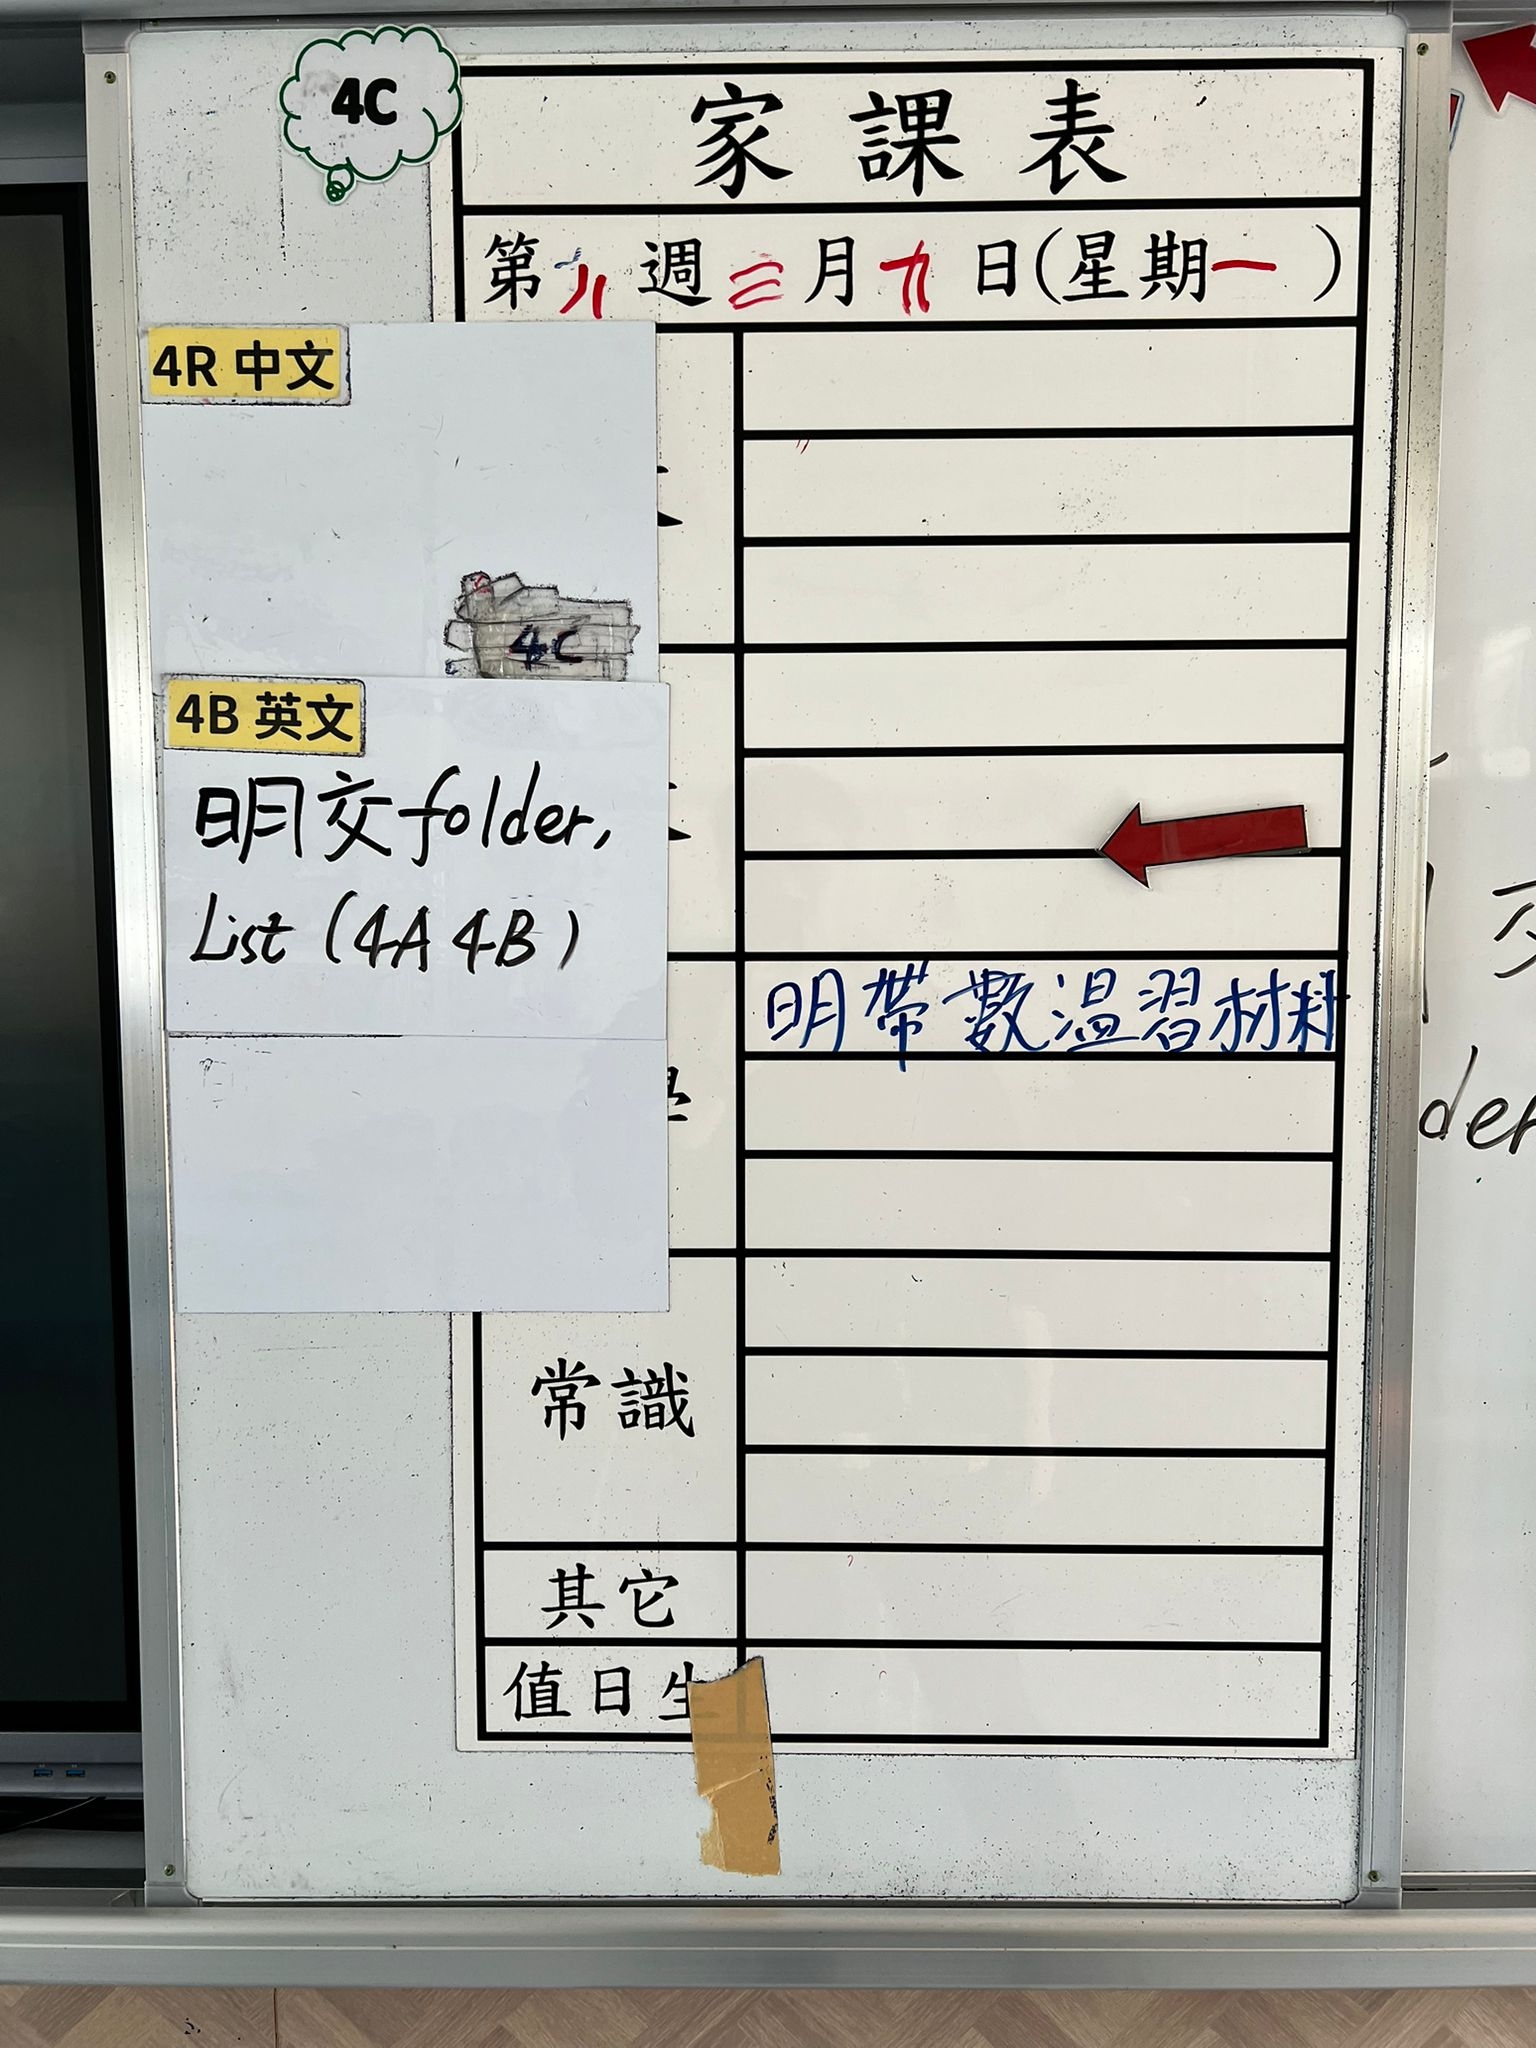 4C
家課表
第八週三月九日(星期一)
4R 中文
4C
4B 英文
明交folder,
List (4A 4B)
明帶數溫習材料
常識
其它
值日生